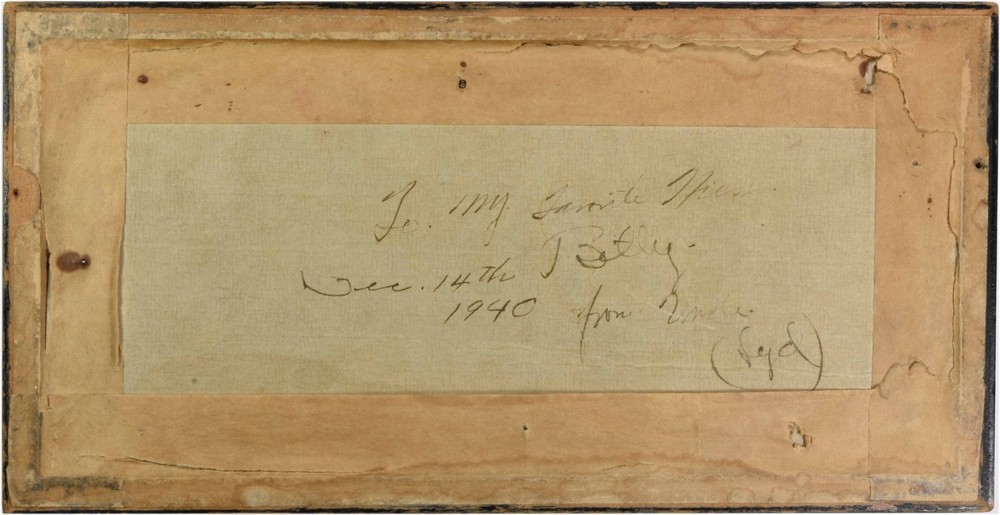 To. My. Favorite Niece.
Betty.
Dec. 14th
1940 from Uncle.
(Syd)